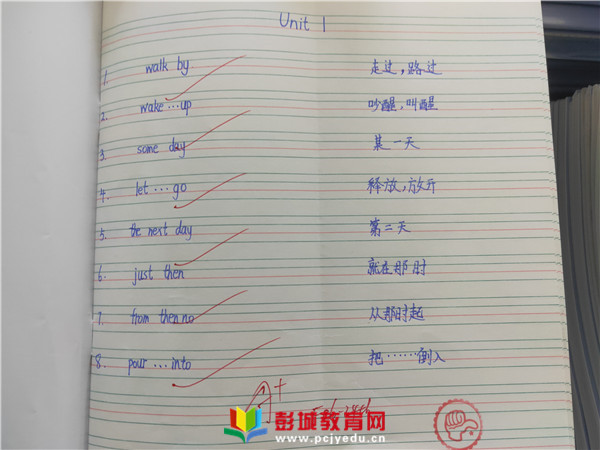 Unit 1
1. walk by 走过,路过
2. wake…up 吵醒,叫醒
3. some day 某一天
4. let…go 释放,放开
5. the next day 第二天
6. just then 就在那时
7. from then no 从那时起
8. pour…into 把……倒入
A+
彭城教育网
www.pcjyedu.cn